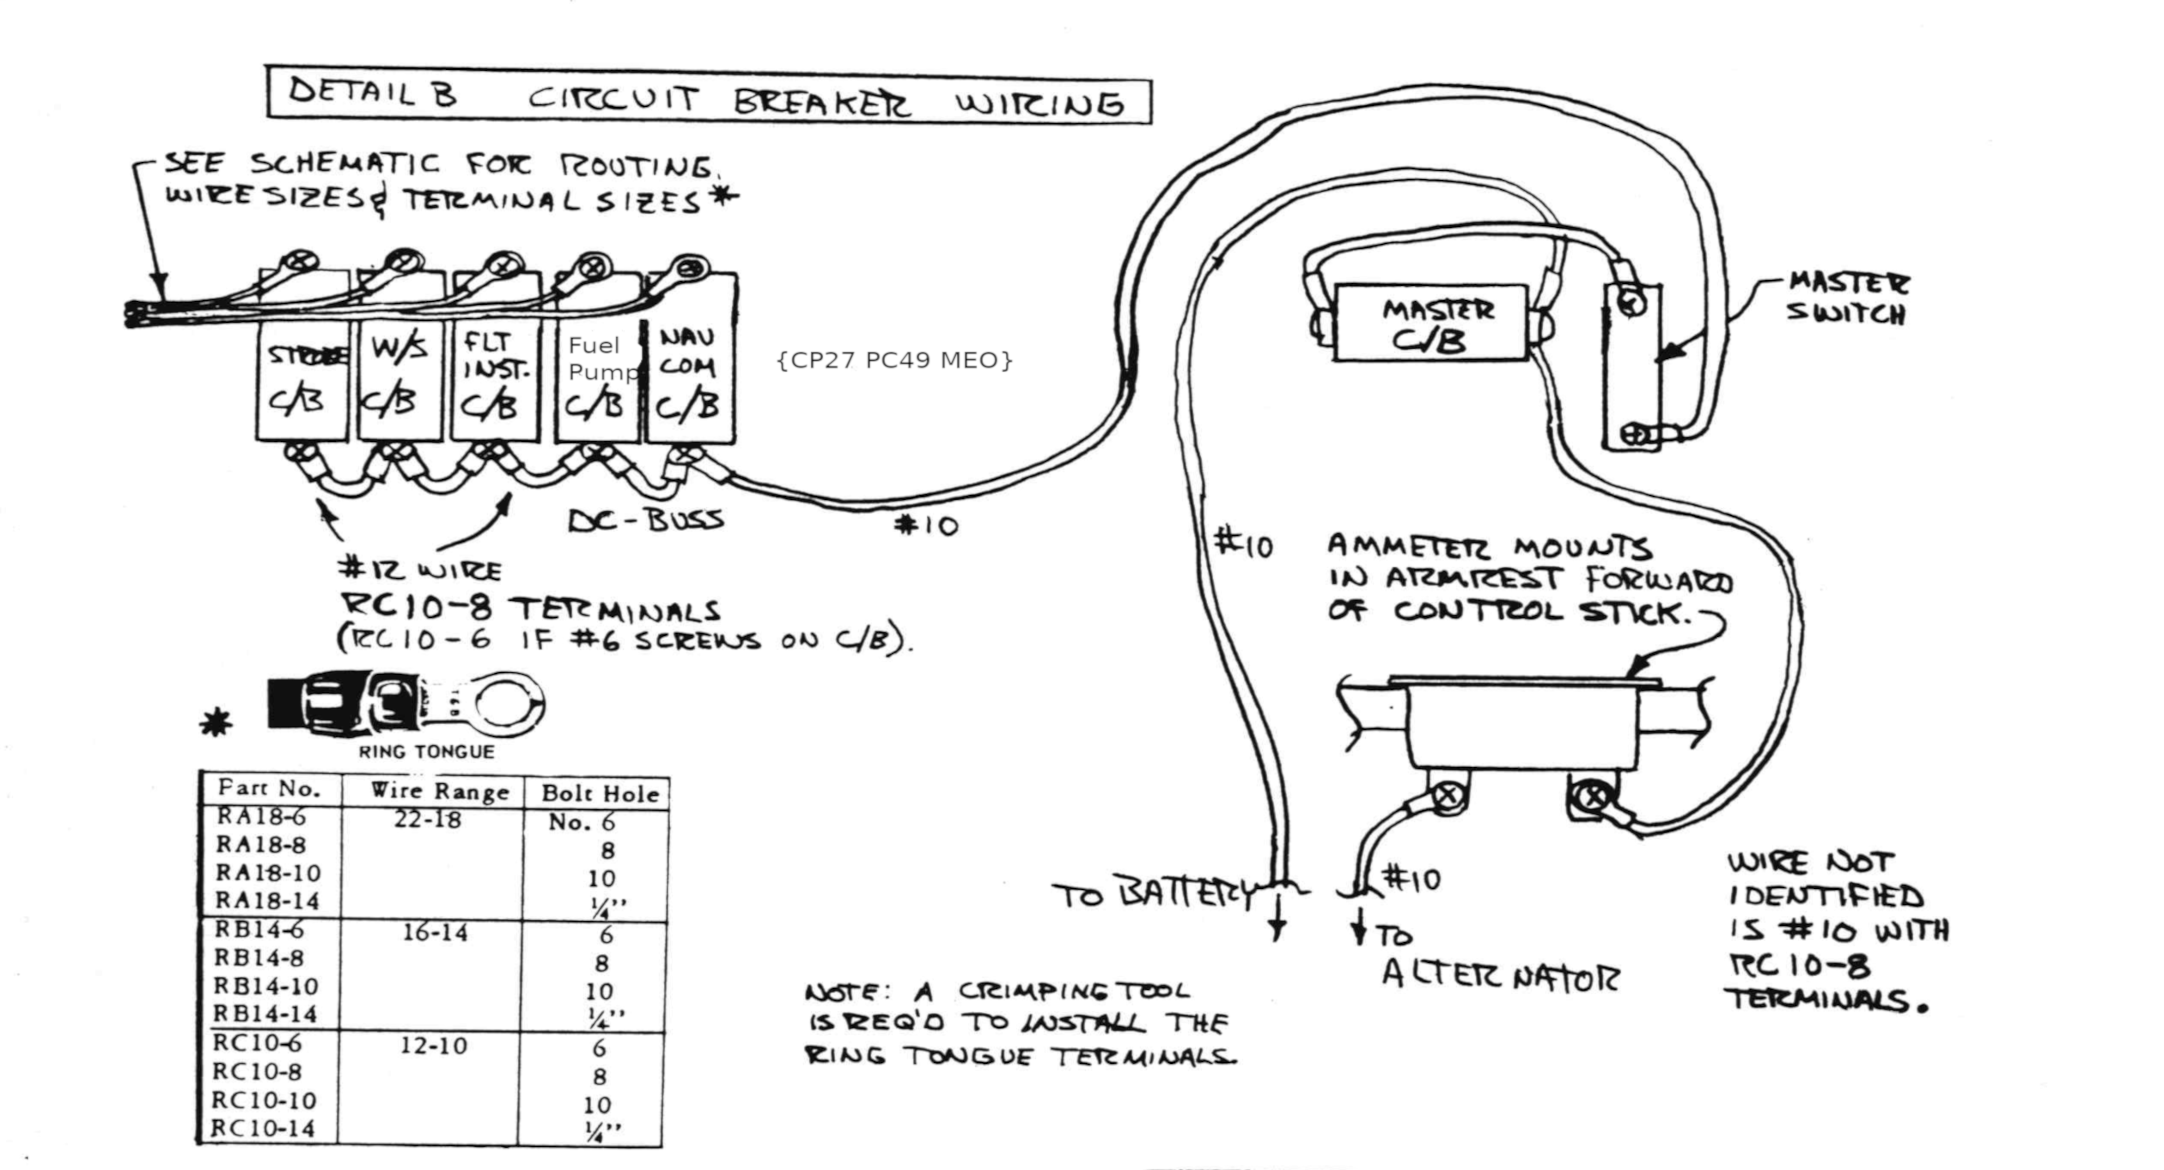 DETAIL B CIRCUIT BREAKER WIRING
SEE SCHEMATIC FOR ROUTING,
WIRE SIZES & TERMINAL SIZES *
STROBE
C/B
W/S
C/B
FLT
INST.
C/B
Fuel
Pump
C/B
NAV
COM
C/B
{CP27 PC49 MEO}
MASTER
C/B
MASTER
SWITCH
DC-BUSS
#10
#12 WIRE
RC10-8 TERMINALS
(RC10-6 IF #6 SCREWS ON C/B).
#10
AMMETER MOUNTS
IN ARMREST FORWARD
OF CONTROL STICK.
*
RING TONGUE
Part No. Wire Range Bolt Hole
RA18-6 22-18 No. 6
RA18-8 8
RA18-10 10
RA18-14 1/4"
RB14-6 16-14 6
RB14-8 8
RB14-10 10
RB14-14 1/4"
RC10-6 12-10 6
RC10-8 8
RC10-10 10
RC10-14 1/4"
TO BATTERY
#10
TO
ALTERNATOR
WIRE NOT
IDENTIFIED
IS #10 WITH
RC10-8
TERMINALS.
NOTE: A CRIMPING TOOL
IS REQ'D TO INSTALL THE
RING TONGUE TERMINALS.